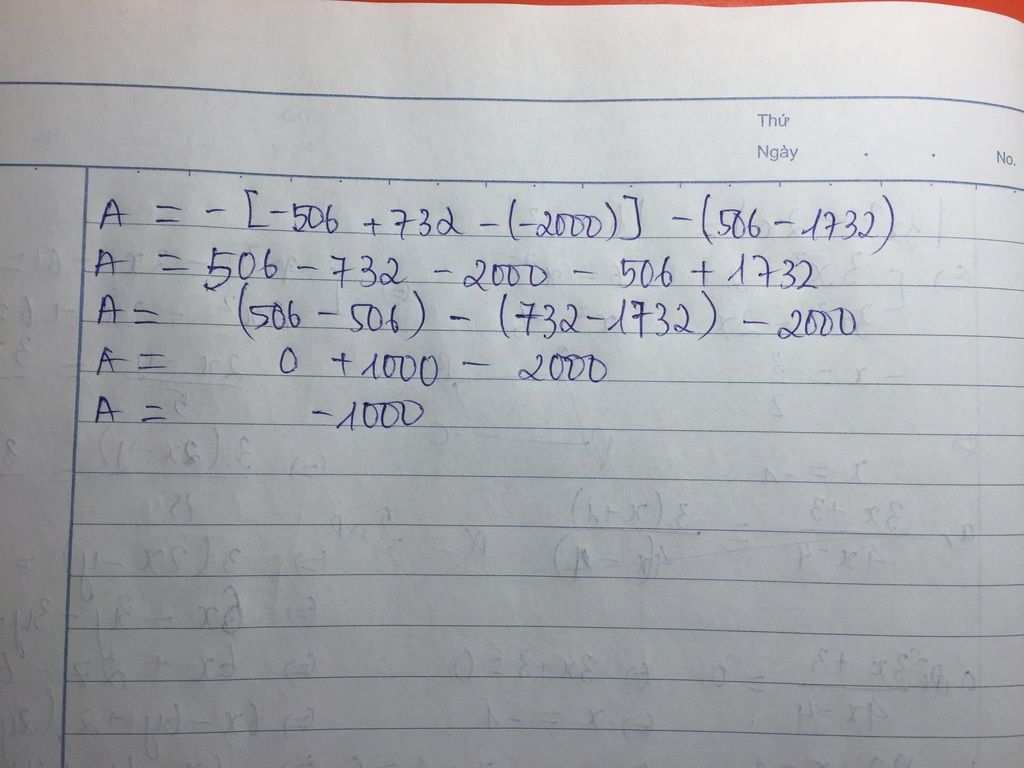 Thứ
Ngày . . No.
A = - [-506 + 732 - (-2000)] - (506 - 1732)
A = 506 - 732 - 2000 - 506 + 1732
A = (506 - 506) - (732 - 1732) - 2000
A = 0 + 1000 - 2000
A = -1000